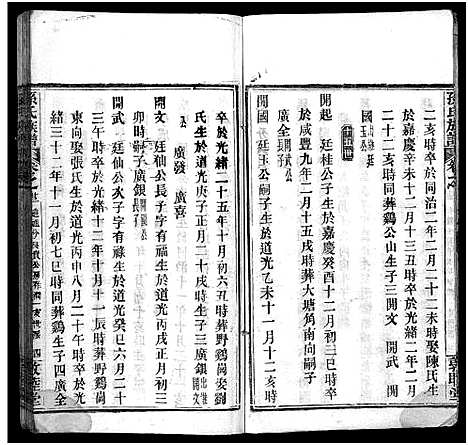 孫氏族譜
二亥時卒於同治二年二月二十二亥時娶陳氏生
於嘉慶辛未十二月十三卯時卒於光緒二年二月
二十八亥時同葬鷄公山生子三開文 開武 開
國
十五世
開起 廷桂公子生於嘉慶癸酉十二月初八巳時卒
於咸豐九年二月十五戌時葬大塘角南向嗣子
開國 廷玉公嗣子生於道光乙未十一月十二亥時
卒於光緒二十五年十月初六丑時葬野鷄崗娶劉
氏生於道光庚子正月二十八時生子三廣銀
廣發 廣喜
開文 廷仙公長子字有福生於道光丙戌正月初三
卯時嗣子廣銀
開武 廷仙公次子字有祿生於道光癸巳六月二十
三午時卒於光緒十二年十月十一辰時葬野鷄崗
東向娶張氏生於道光丙申八月二十六午時卒於光
緒三十二年十一月初七巳時同葬鷄生子四廣全
孫氏族譜
四
敦睦堂